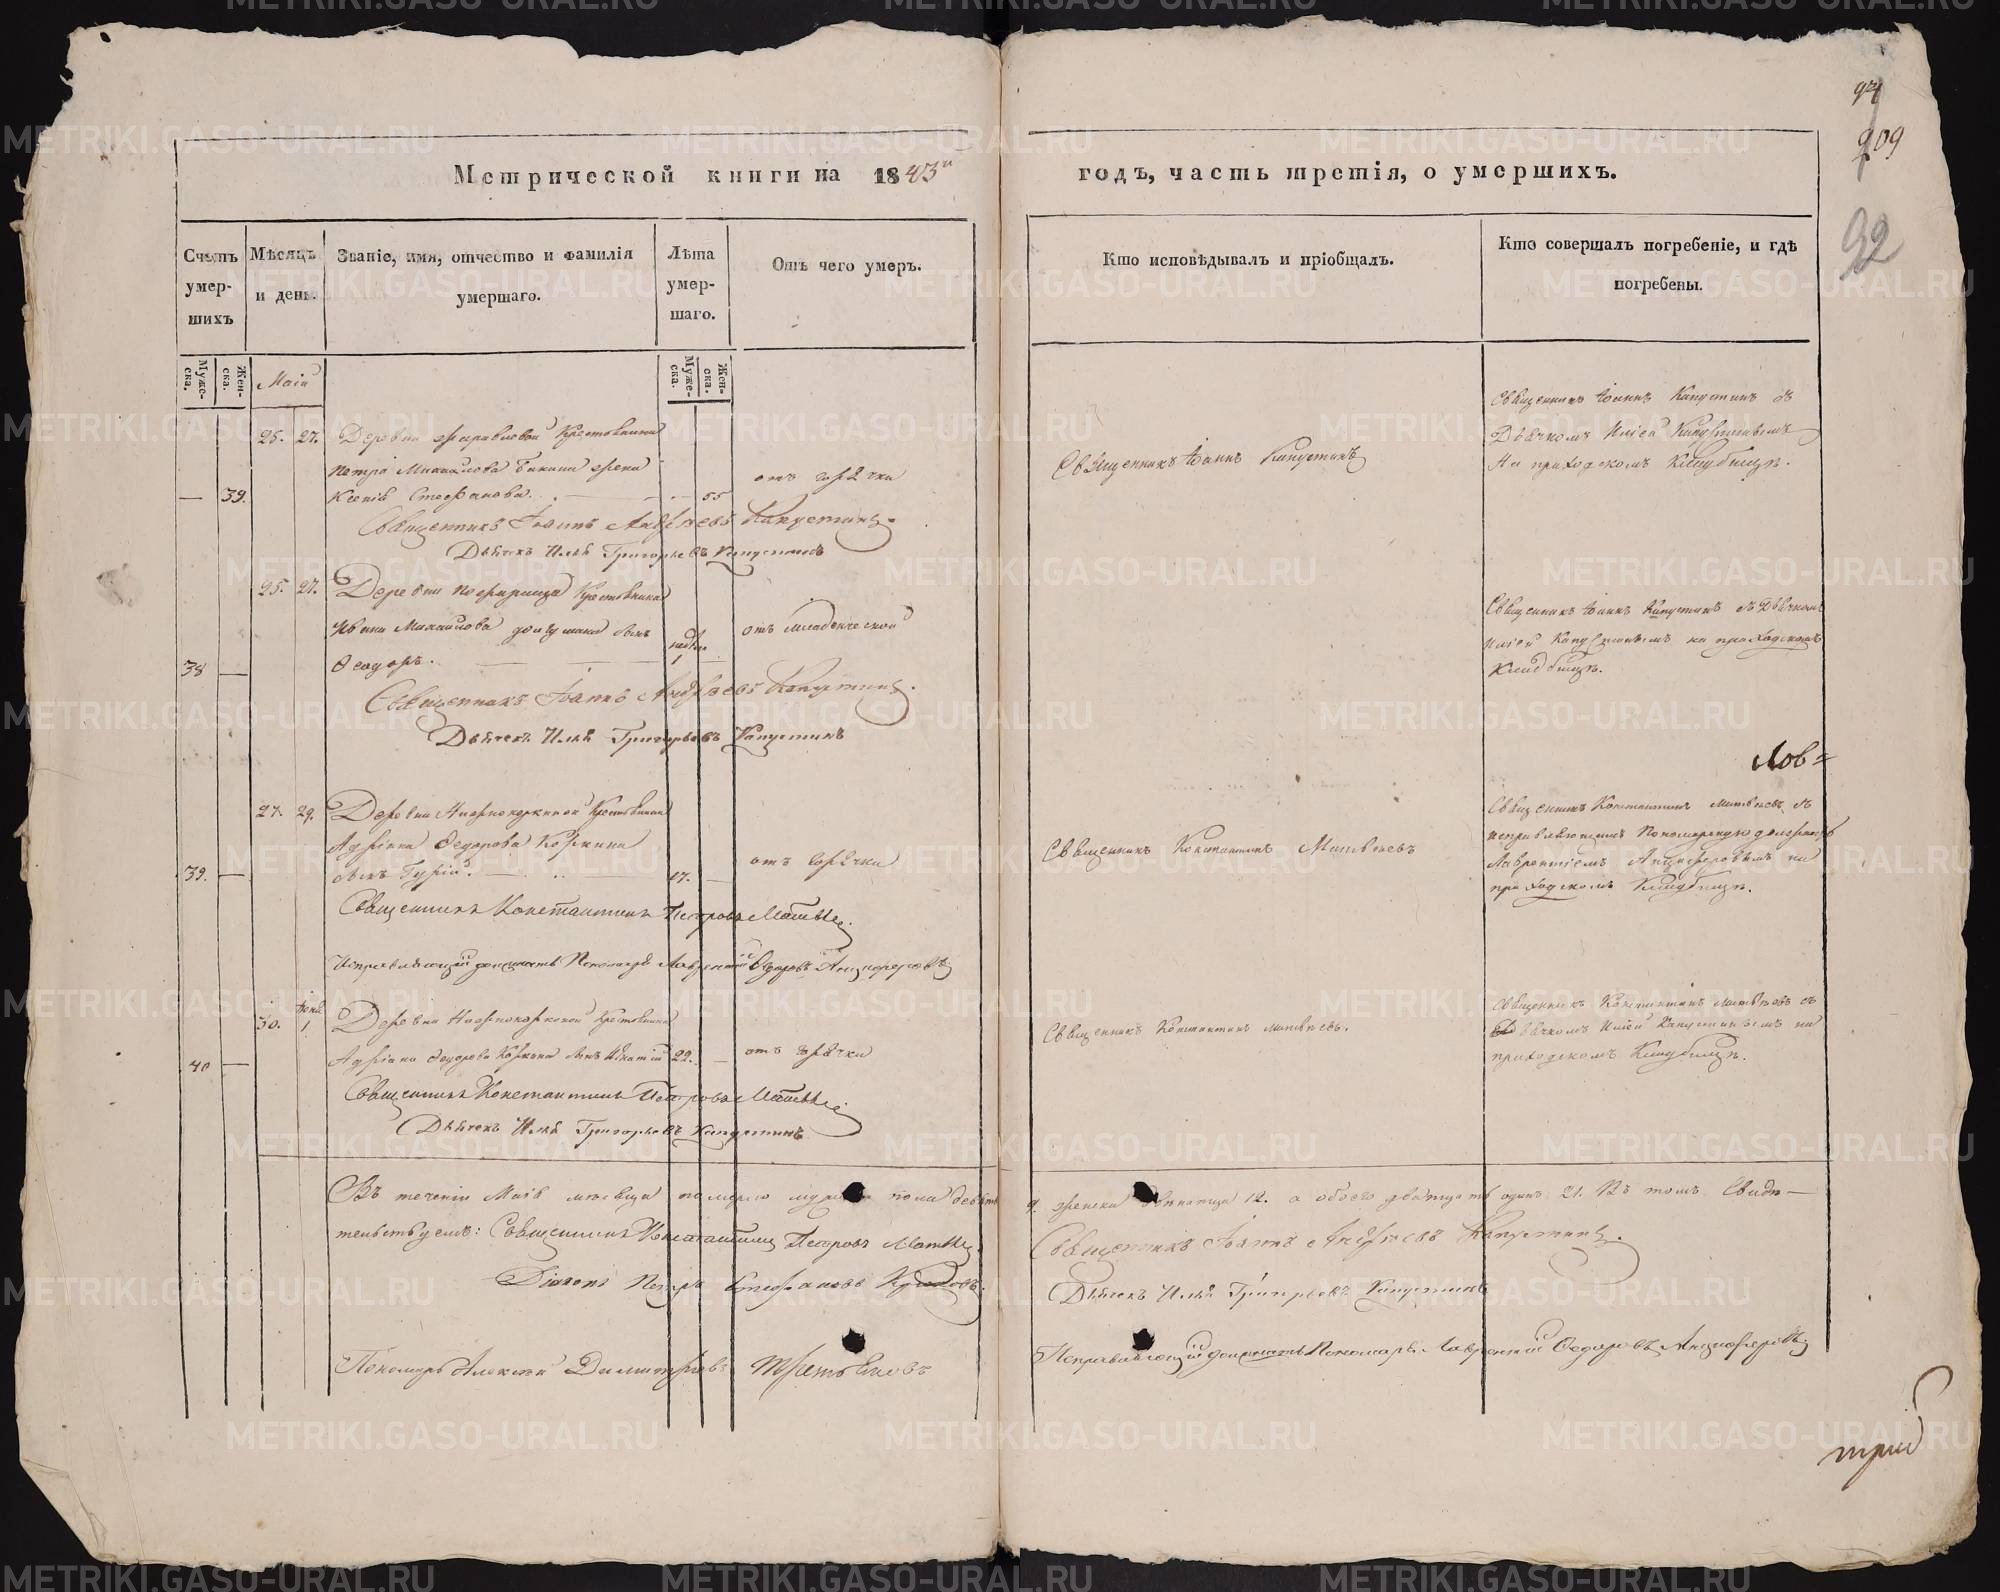 97
209
92
Метрической книги на 1843й
годъ, часть третія, о умершихъ.
Счетъ умер-шихъ
Мѣсяцъ и день.
Званіе, имя, отчество и фамилія умершаго.
Лѣта умер-шаго.
Отъ чего умеръ.
Кто исповѣдывалъ и пріобщалъ.
Кто совершалъ погребеніе, и гдѣ погребены.
Муже-ска.
Жен-ска.
Маія
Муже-ска.
Жен-ска.
25. 27. Деревни Журавлевой Крестьянина
Петра Михайлова жена
— 39. Ксенія Стефанова. 55 отъ горячки
Священникъ Іоаннъ Капустинъ
Священникъ Іоаннъ Капустинъ съ
Дьячкомъ Иліей Капустинымъ
На приходскомъ Кладбищѣ.
Священникъ Іоаннъ Андреевъ Капустинъ.
Дьячекъ Илья Григорьевъ Капустинъ
25. 27. Деревни Крестьянина
Ивана Михайлова сынъ
38 — Ѳеодоръ. 1 — отъ младенческой
Священникъ Іоаннъ Капустинъ съ Дьячкомъ
Иліей Капустинымъ на приходскомъ
Кладбищѣ.
Священникъ Іоаннъ Андреевъ Капустинъ.
Дьячекъ Илья Григорьевъ Капустинъ
Лов=
27. 29. Деревни Крестьянина
Адріана Ѳедорова Коркина
39. — сынъ Гурій. 17. — отъ горячки
Священникъ Константинъ Матвѣевъ
Священникъ Константинъ Матвѣевъ съ
исправляющимъ Пономарскую должность
Лаврентіемъ Анциферовымъ на
приходскомъ Кладбищѣ.
Священникъ Константинъ Петровъ Матвѣевъ.
Исправляющій должность Пономаря Лаврентій Ѳедоровъ Анциферовъ
30. Іюня 1 Деревни Крестьянина
40 — Адріана Ѳедорова Коркина сынъ Игнатій 22. — отъ горячки
Священникъ Константинъ Матвѣевъ.
Священникъ Константинъ Матвѣевъ съ
Дьячкомъ Иліей Капустинымъ на
приходскомъ Кладбищѣ.
Священникъ Константинъ Петровъ Матвѣевъ
Дьячекъ Илья Григорьевъ Капустинъ
Въ теченіи Маія мѣсяца померло мужеска пола девять
9. женска двѣнатцать 12. а обоего двадцать одинъ 21. Въ томъ свидѣ—
тельствуемъ: Священникъ Константинъ Петровъ Матвѣевъ.
Священникъ Іоаннъ Андреевъ Капустинъ.
Діаконъ Петръ Стефановъ
Дьячекъ Илья Григорьевъ Капустинъ
Пономарь Алексѣй Димитріевъ Третьяковъ
Исправляющій должность Пономаря Лаврентій Ѳедоровъ Анциферовъ
трій
METRIKI.GASO-URAL.RU